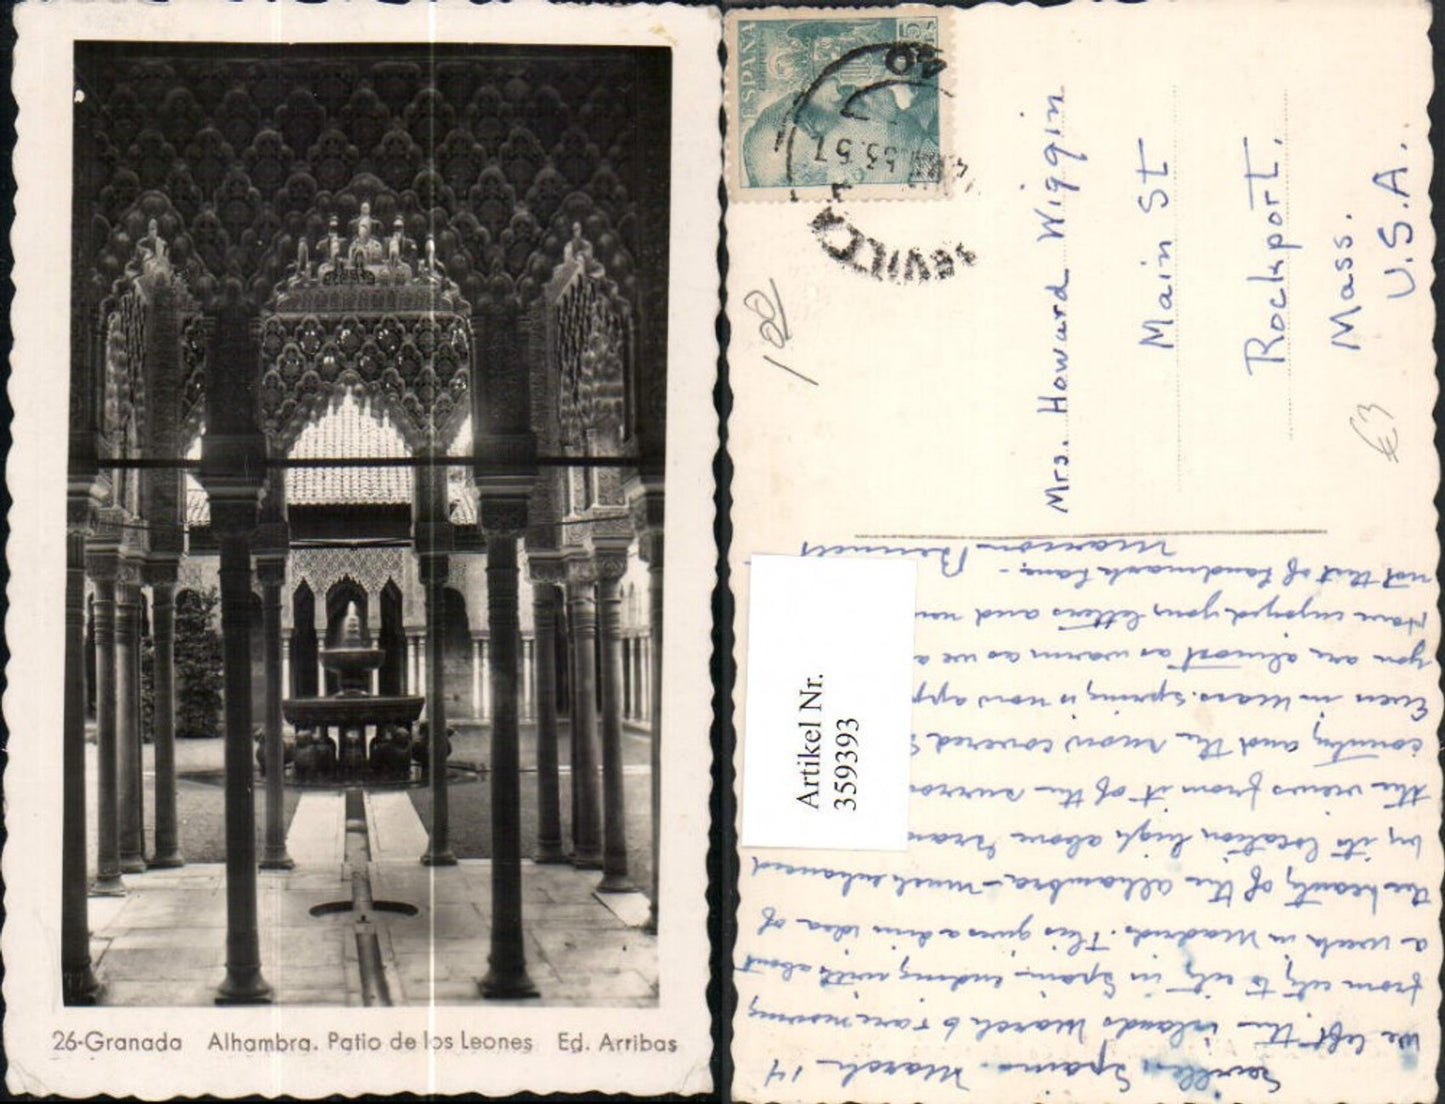 26-Granada Alhambra. Patio de los Leones Ed. Arribas
ESPAÑA
SEVILLA
Mrs. Howard Wiggin
Main St
Rockport,
Mass.
U.S.A.
100
€3
Artikel Nr.
359393
Seville, Spain. March 14
We left the islands March 6 & are moving
from city to city in Spain, ending with about
a week in Madrid. This gives a dim idea of
the beauty of the Alhambra - much enhanced
by its location high above
the views from it of the
country and the snow covered
Even in Mass. Spring is now
you are almost as warm as we
Have enjoyed your letters and
not that of Landmark Lane -
Marion Bennett